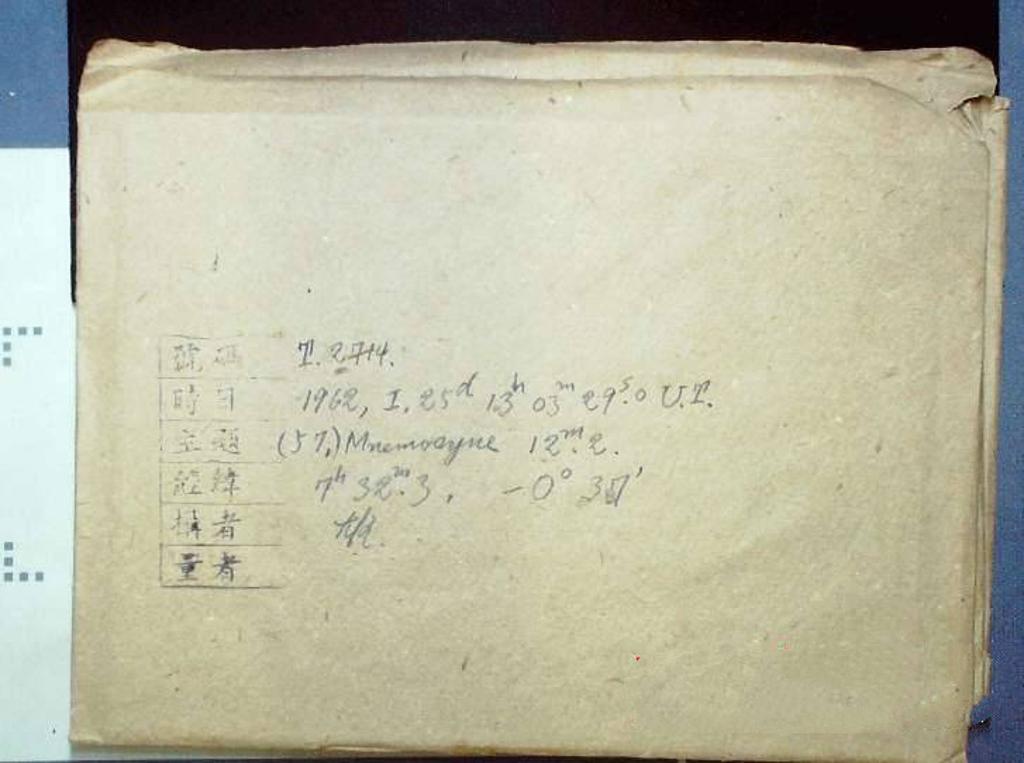 號碼 T. 2714.
時日 1962, I. 25ᵈ 13ʰ 03ᵐ 29ˢ.0 U.T.
主題 (57,) Mnemosyne 12ᵐ.2.
經緯 7ʰ 32ᵐ.3, -0° 37′
攝者
量者